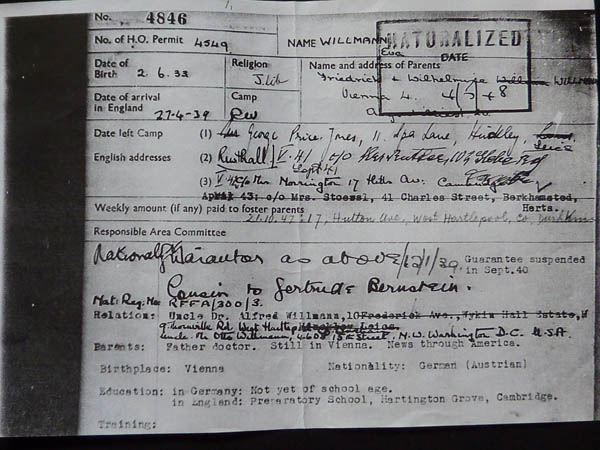 No. 4846
No. of H.O. Permit 4549 NAME WILLMANN Eva
NATURALIZED
DATE
4/7 48
Date of Birth 2. 6. 33 Religion J. lib Name and address of Parents
Friedrich & Wilhelmine
Vienna 4.
Date of arrival in England 27-4-39 Camp
Date left Camp (1) George Price Jones, 11. Spa Lane, Hinckley, Leics
English addresses (2) Rusthall V. 41 c/o
(3) Mrs. Morrington 17 Ave. Cambridge
April 43: c/o Mrs. Stoessl, 41 Charles Street, Berkhamsted, Herts.
Weekly amount (if any) paid to foster parents
21.10.47: 17, Hutton Ave, West Hartlepool, Co. Durham
Responsible Area Committee
Guarantor as above Guarantee suspended in Sept.40
Cousin to Gertrude Bernstein.
Nat: Reg: No: RFFA/300/3.
Relation: Uncle Dr. Alfred Willmann, 10 Frederick Ave., Wykin Hall Estate,
Uncle Mr Otto Willmann, 4608 15th Street, N.W. Washington D.C. U.S.A.
Parents: Father doctor. Still in Vienna. News through America.
Birthplace: Vienna Nationality: German (Austrian)
Education: in Germany: Not yet of school age.
in England: Preparatory School, Hartington Grove, Cambridge.
Training: